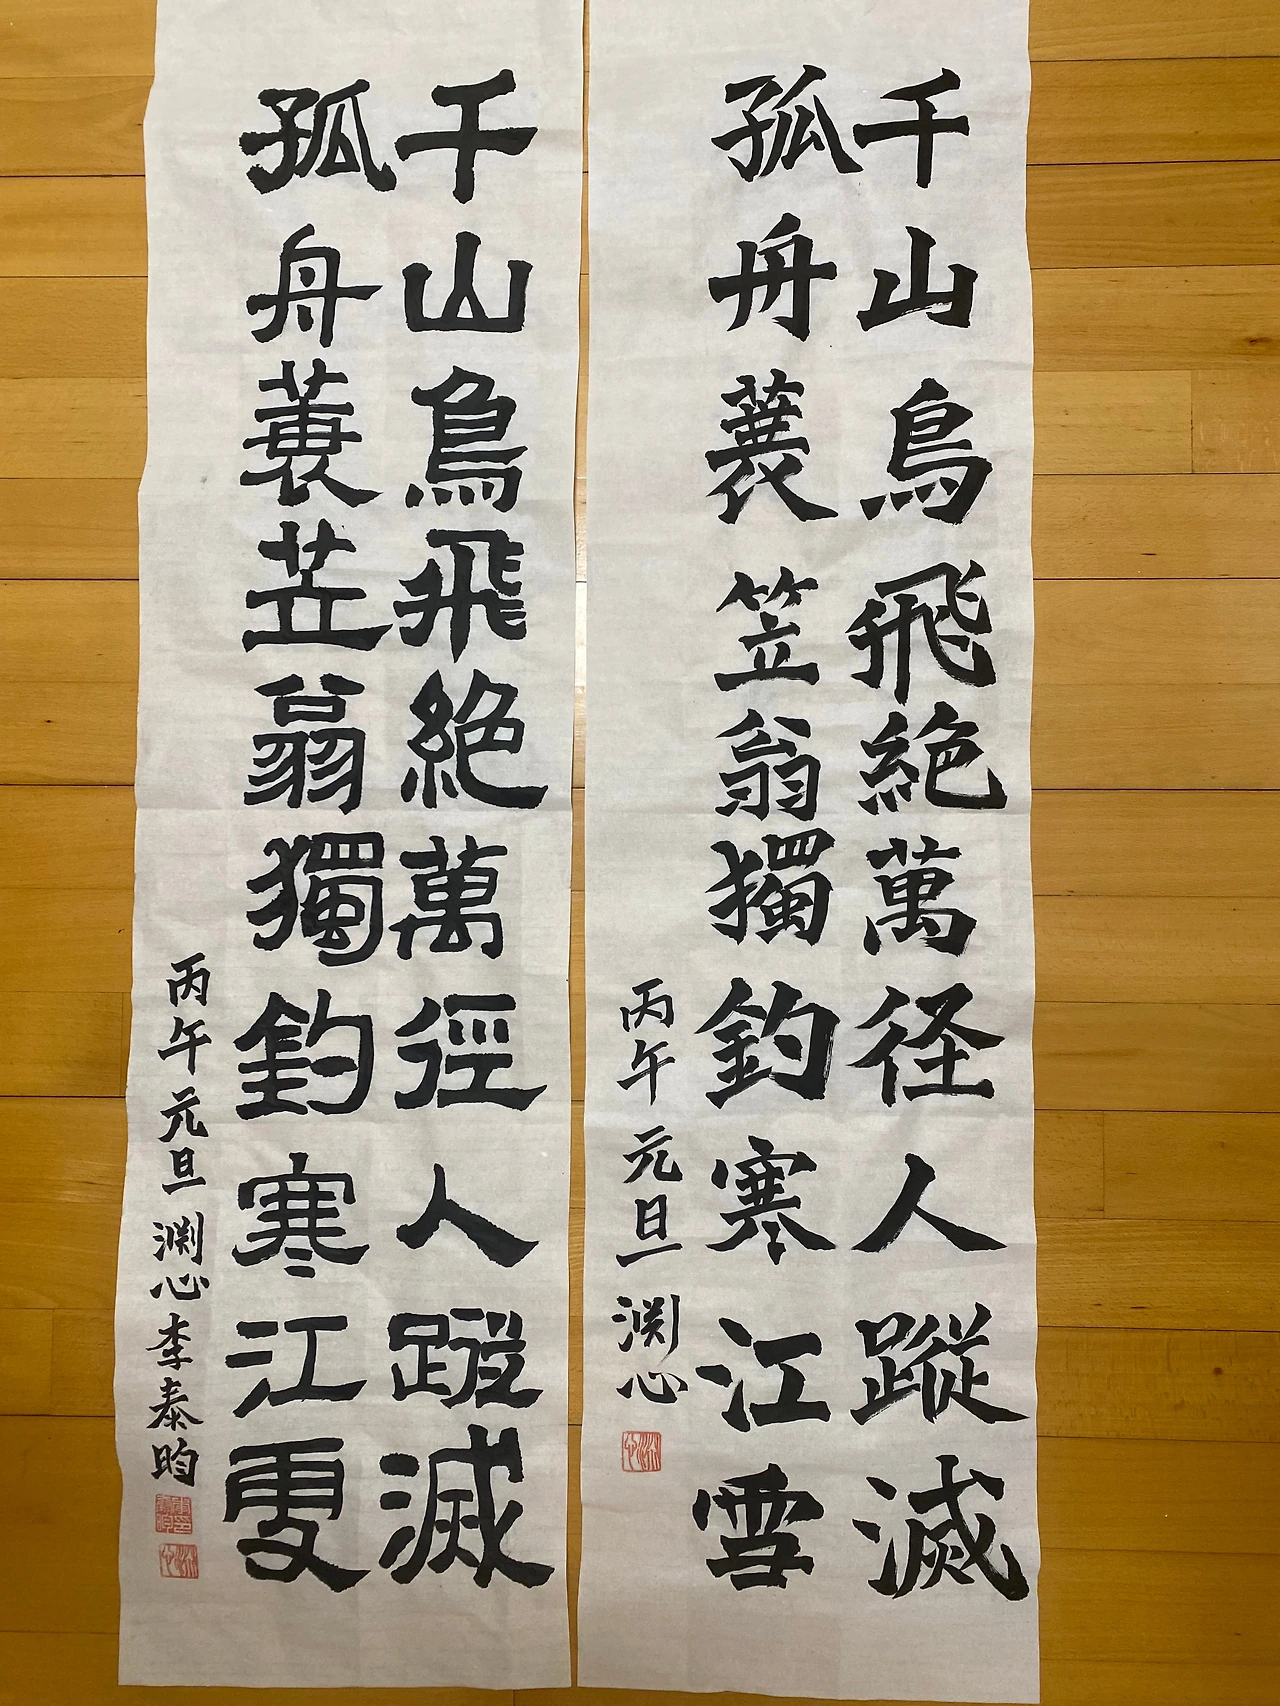 千山鳥飛絶萬径人蹤滅
孤舟蓑笠翁獨釣寒江雪
丙午元旦 渊心
千山鳥飛絶萬徑人蹤滅
孤舟蓑苙翁獨釣寒江雪
丙午元旦 渊心李泰昀